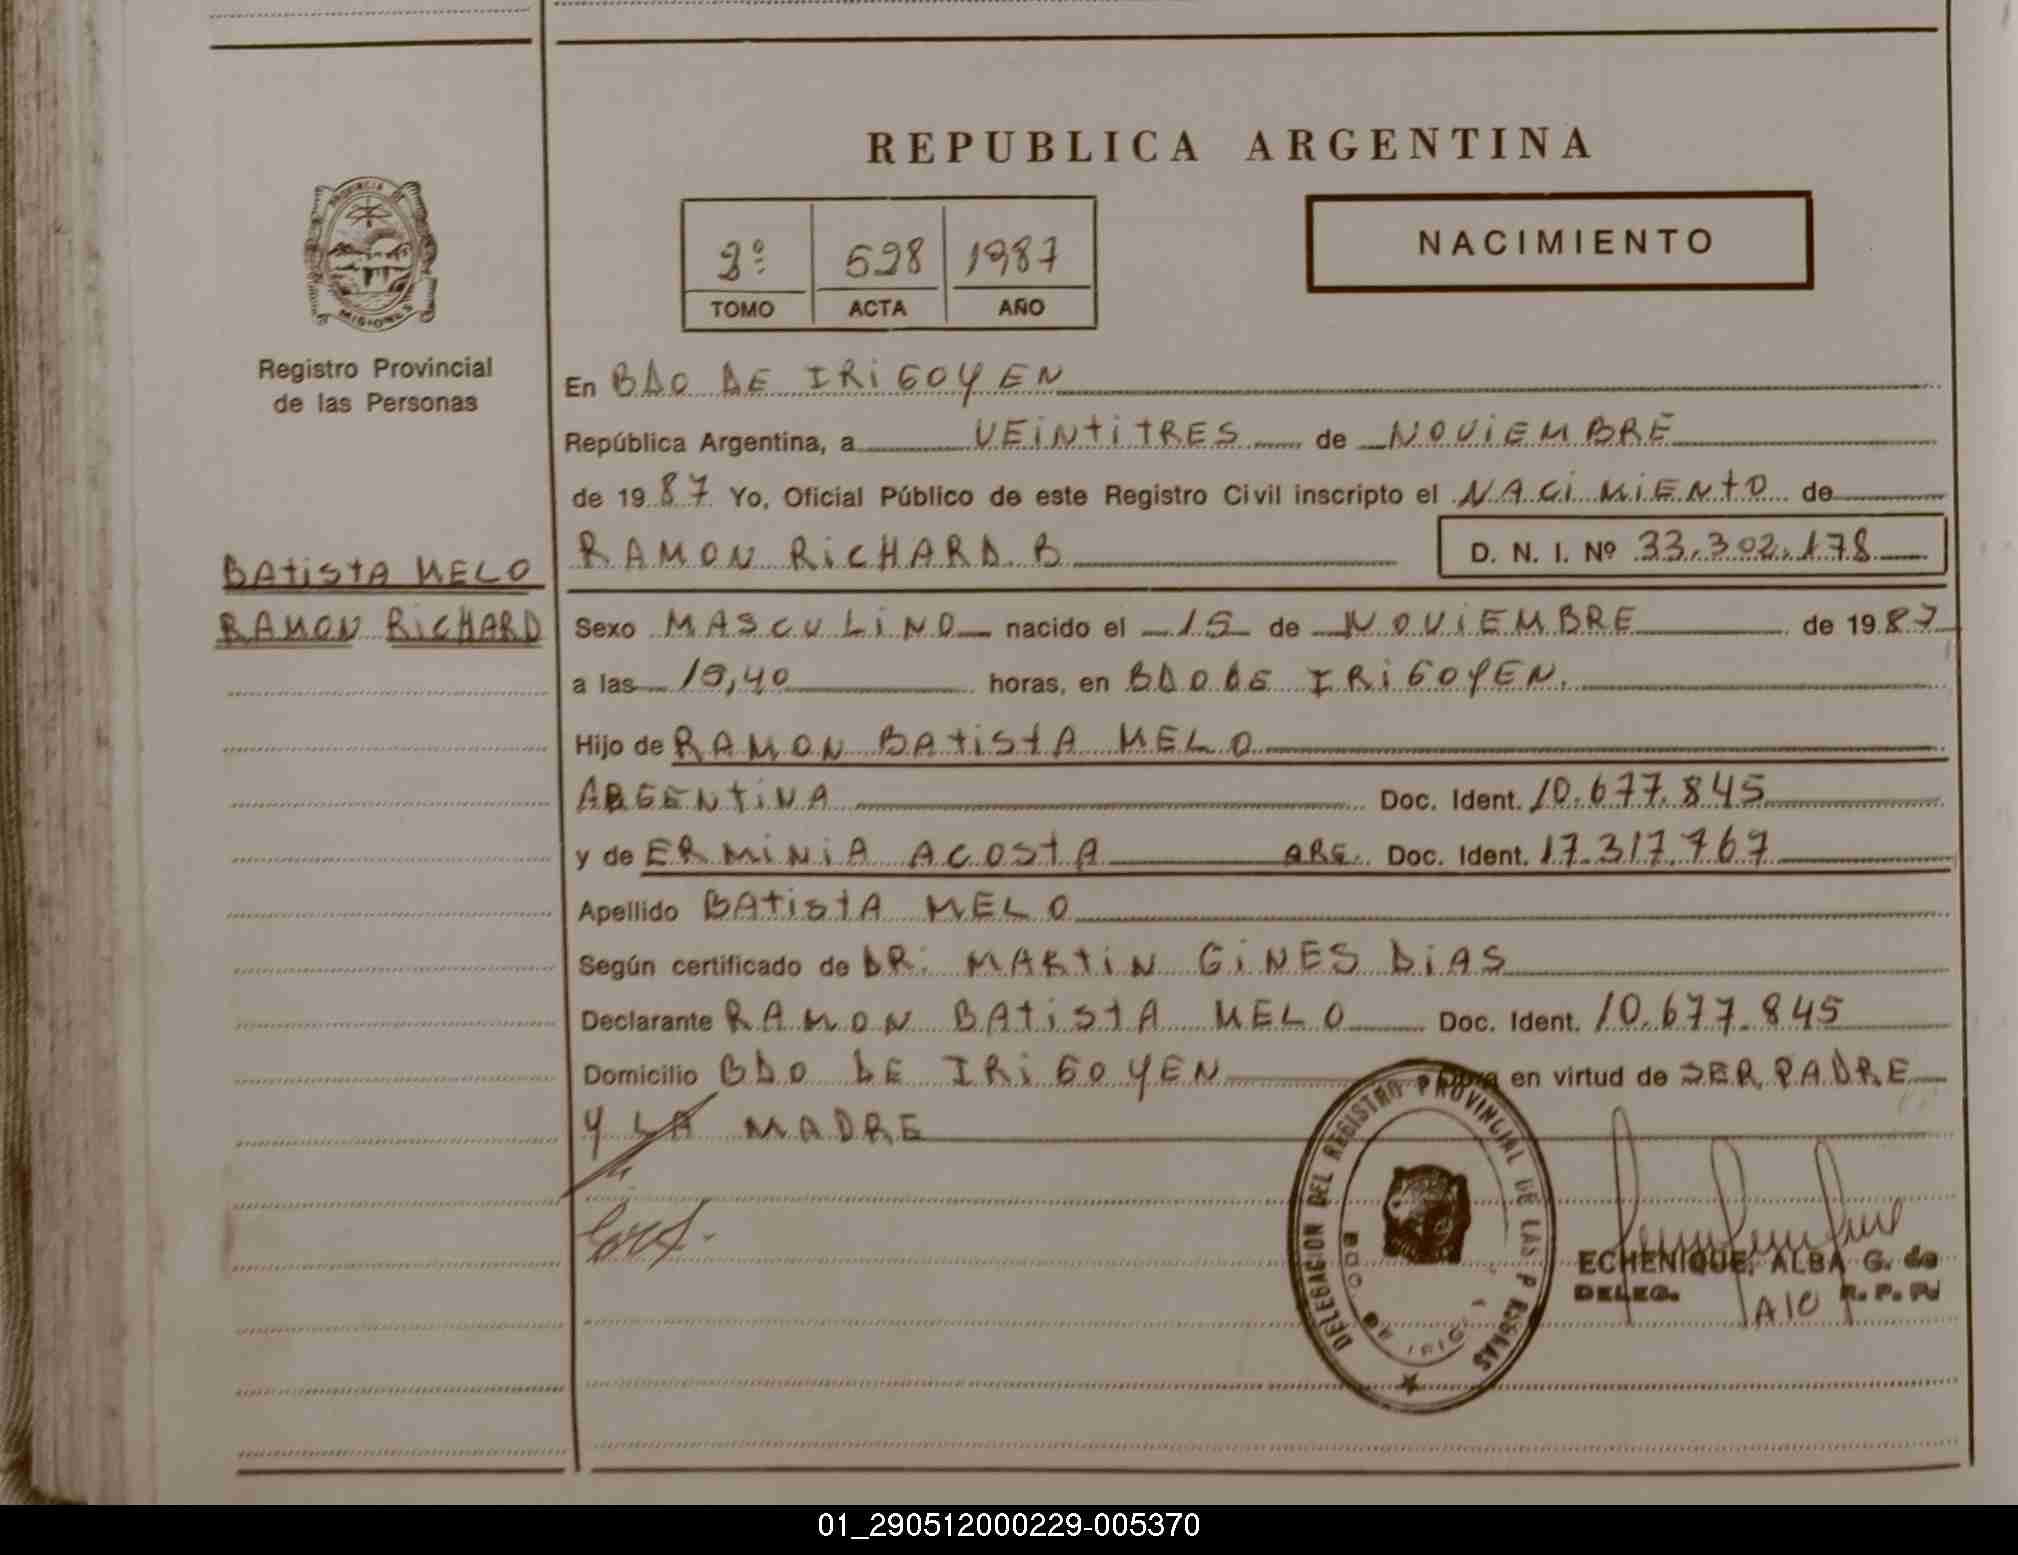 REPUBLICA ARGENTINA
NACIMIENTO
3º 528 1987
TOMO ACTA AÑO
PROVINCIA DE
MISIONES
Registro Provincial
de las Personas
En BDO DE IRIGOYEN
República Argentina, a VEINTITRES de NOVIEMBRE
de 1987 Yo, Oficial Público de este Registro Civil inscripto el NACIMIENTO de
RAMON RICHARD B D. N. I. Nº 33.302.178
BATISTA MELO
RAMON RICHARD
Sexo MASCULINO nacido el 15 de NOVIEMBRE de 1987
a las 19,40 horas, en BDO DE IRIGOYEN.
Hijo de RAMON BATISTA MELO
ARGENTINA Doc. Ident. 10.677.845
y de ERMINIA ACOSTA ARG. Doc. Ident. 17.317.767
Apellido BATISTA MELO
Según certificado de DR: MARTIN GINES DIAS
Declarante RAMON BATISTA MELO Doc. Ident. 10.677.845
Domicilio BDO DE IRIGOYEN Obra en virtud de SER PADRE
Y LA MADRE
DELEGACION DEL REGISTRO PROVINCIAL DE LAS PERSONAS
BDO. DE IRIG
ECHENIQUE, ALBA G. de
DELEG. A/C R. P. P.
01_290512000229-005370